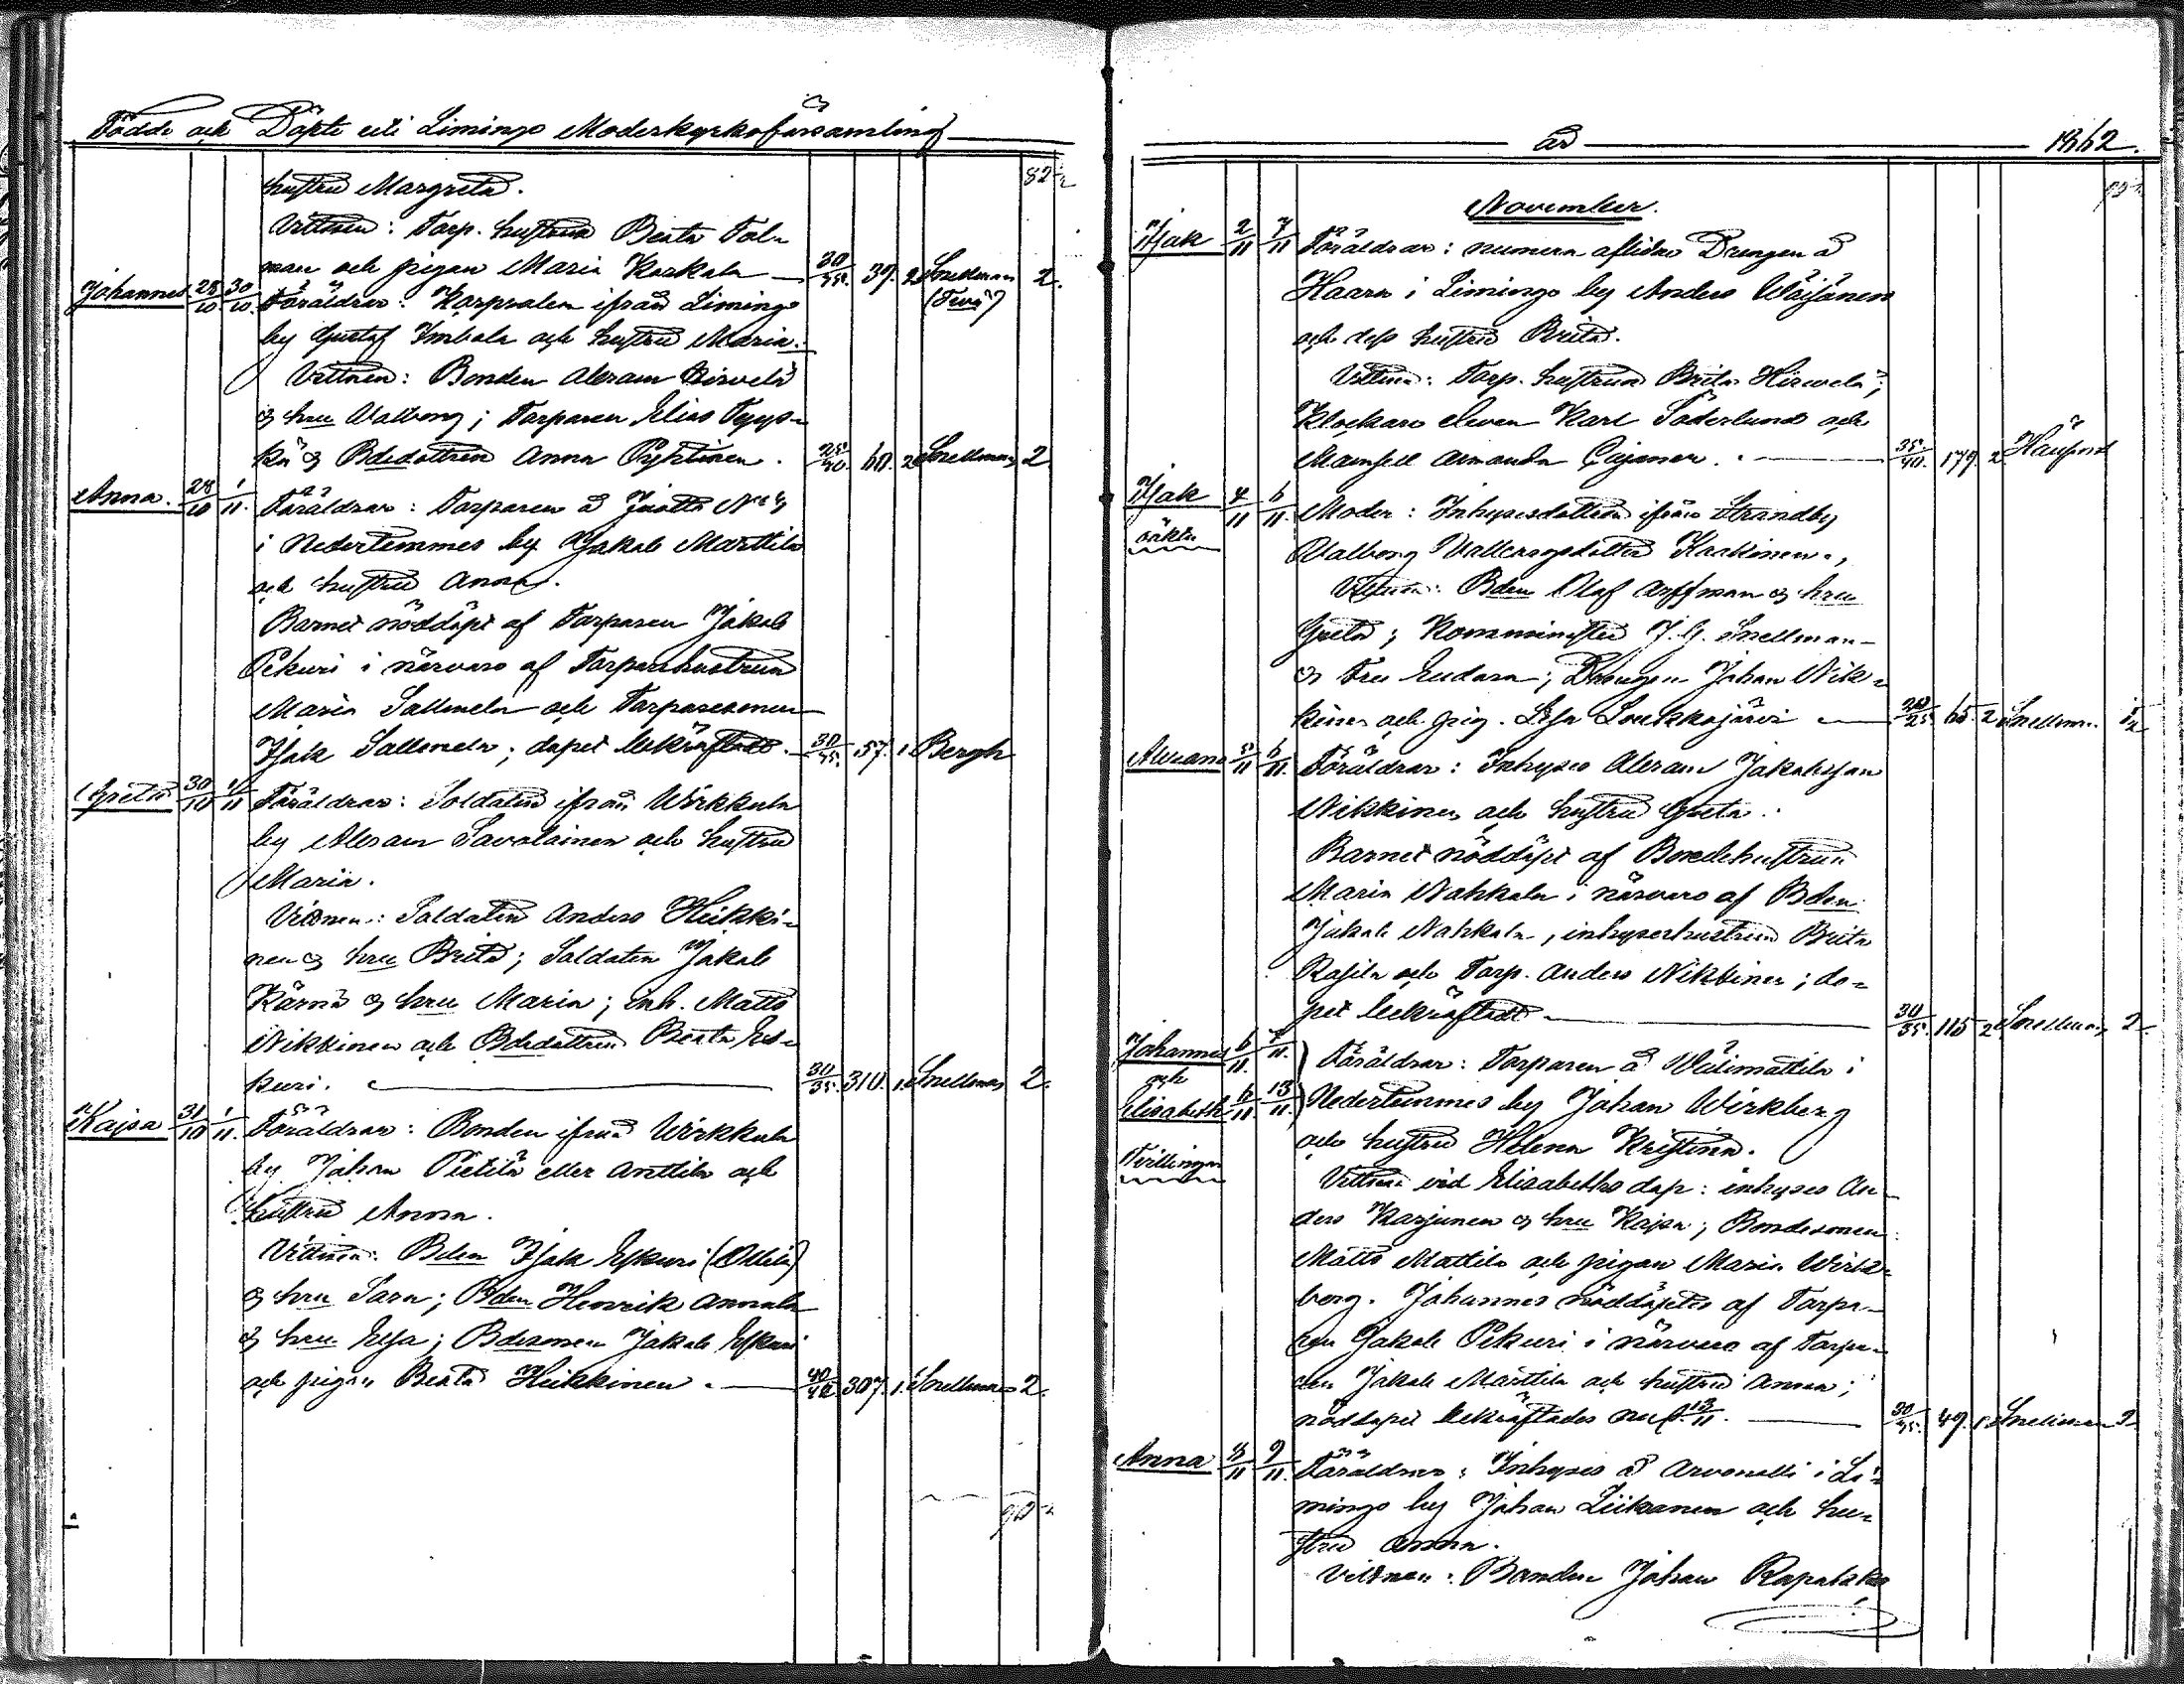 Födde och Döpte uti Limingo Moderkyrkoförsamling
82
hustru Margreta.
Vittnen: Torp. hustrun Beata Tol-
man och pigan Maria Karkala — 30/35. 39. 2. Snellman 2.
Johannes 28/10 30/10. Föräldrar: Korpralen ifrån Limingo
by Gustaf Imbala och hustru Maria.
Vittnen: Bonden Abram Hirvelä
och hru Valborg; Torparen Elias Typpö-
kä och Bdedottren Anna Pyktinen. 60. 2. Snellman 2.
Anna. 28/10 1/11. Föräldrar: Torparen å Juotti No 4
i Nedertemmes by Jakob Marttila
och hustru Anna.
Barnet nöddöpt af Torparen Jakob
Pekuri i närvaro af Torparehustrun
Maria Sallmela och Torparesonen
Isak Sallmela; dopet bekräftadt. — 30/35. 57. 1. Bergh
Greta 30/10 1/11 Föräldrar: Soldaten ifrån Wirkkula
by Abram Savolainen och hustru
Maria.
Vittnen: Soldaten Anders Heikki-
nen och hru Brita; Soldaten Jakob
Kärnä och hru Maria; inh. Matts
Nikkinen och Bdedottren Beata Es-
kuri. — 30/35. 310. 1. Snellman 2.
Kajsa 31/10 1/11. Föräldrar: Bonden ifrån Wirkkula
by Johan Pietilä eller Anttila och
hustru Anna.
Vittnen: Bden Isak Eskuri (Ollila)
och hru Sara; Bden Henrik Annala
och hru Elsa; Bdesonen Jakob Eskuri
och pigan Beata Heikkinen. — 307. 1. Snellman 2.
90
år 1862.
November.
Isak 2/11 7/11 Föräldrar: numera aflidne Drengen å
Haara i Limingo by Anders Wäijänen
och dess hustru Brita.
Vittnen: Torp. hustrun Brita Hirvelä;
Klockare eleven Karl Söderlund och
Mamsell Amanda Cajaner. — 35/40. 179. 2.
Isak 4/11 6/11. Moder: Inhysesdottren ifrån Strandby
oäkta Valborg Kaakinen.,
Vittnen: Bden Olaf Arffman och hru
Greta; Kommminister J. G. Snellman
och Fru Eudora; Drengen Johan Nik-
kinen och pig. Lisa Loukkojärvi — 65. 2. Snellman
Abram 5/11 6/11. Föräldrar: Inhyses Abram Jakobsson
Nikkinen och hustru Greta.
Barnet nöddöpt af Bondehustrun
Maria Nahkala i närvaro af Bden
Jakob Nahkala, inhyseshustrun Brita
Rajila och Torp. Anders Nikkinen; do-
pet bekräftadt — 30/35. 115 2. Snellman 2.
Johannes 6/11. 7/11. Föräldrar: Torparen å Wälimattila i
och
Elisabeth 6/11 13/11. Nedertemmes by Johan Wirkberg
och hustru Helena Kristina.
Tvillingar Vittnen vid Elisabeths dop: inhyses An-
ders Karjunen och hru Kajsa; Bondesonen
Matts Mattila och pigan Maria Wirk-
berg. Johannes nöddöptes af Torpa-
ren Jakob Pekuri i närvaro af Torpa-
ren Jakob Marttila och hustru Anna;
nöddopet bekräftades 13/11. — 49. 1. Snellman 2.
Anna 8/11 9/11. Föräldrar: Inhyses å Arvonelli i Li-
mingo by Johan Liikanen och hu-
stru Anna.
Vittnen: Bonden Johan Rapakko